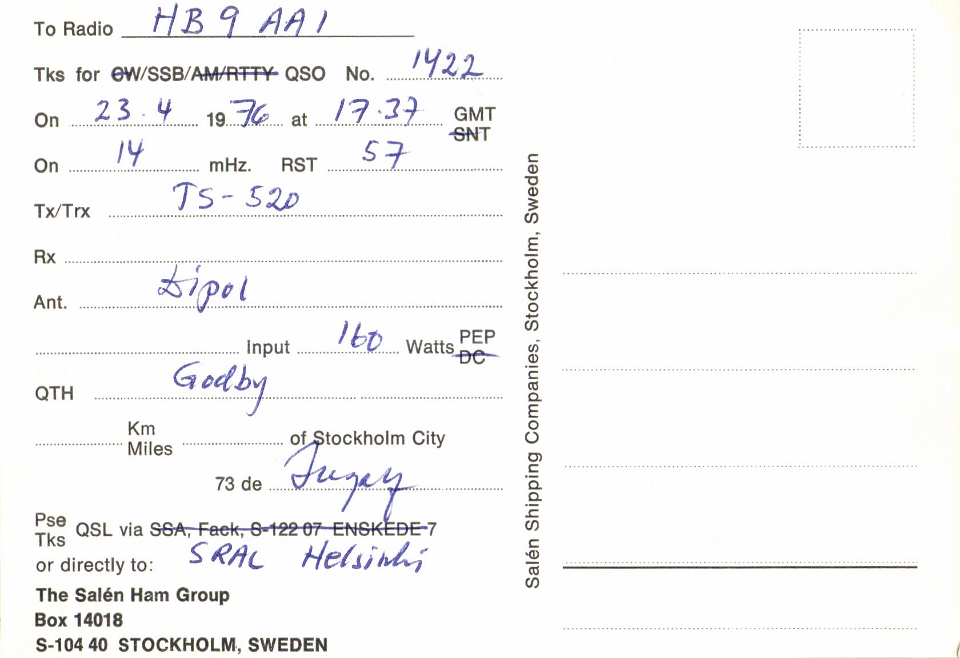 To Radio HB9AAI
Tks for CW/SSB/AM/RTTY QSO No. 1422
On 23.4 1976 at 17.37 GMT
SNT
On 14 mHz. RST 57
Tx/Trx TS-520
Rx
Ant. Dipol
Input 160 Watts PEP
DC
QTH Godby
Km
Miles of Stockholm City
73 de
Pse
Tks QSL via SSA, Fack, S-122 07 ENSKEDE 7
or directly to: SRAL Helsinki
The Salén Ham Group
Box 14018
S-104 40 STOCKHOLM, SWEDEN
Salén Shipping Companies, Stockholm, Sweden